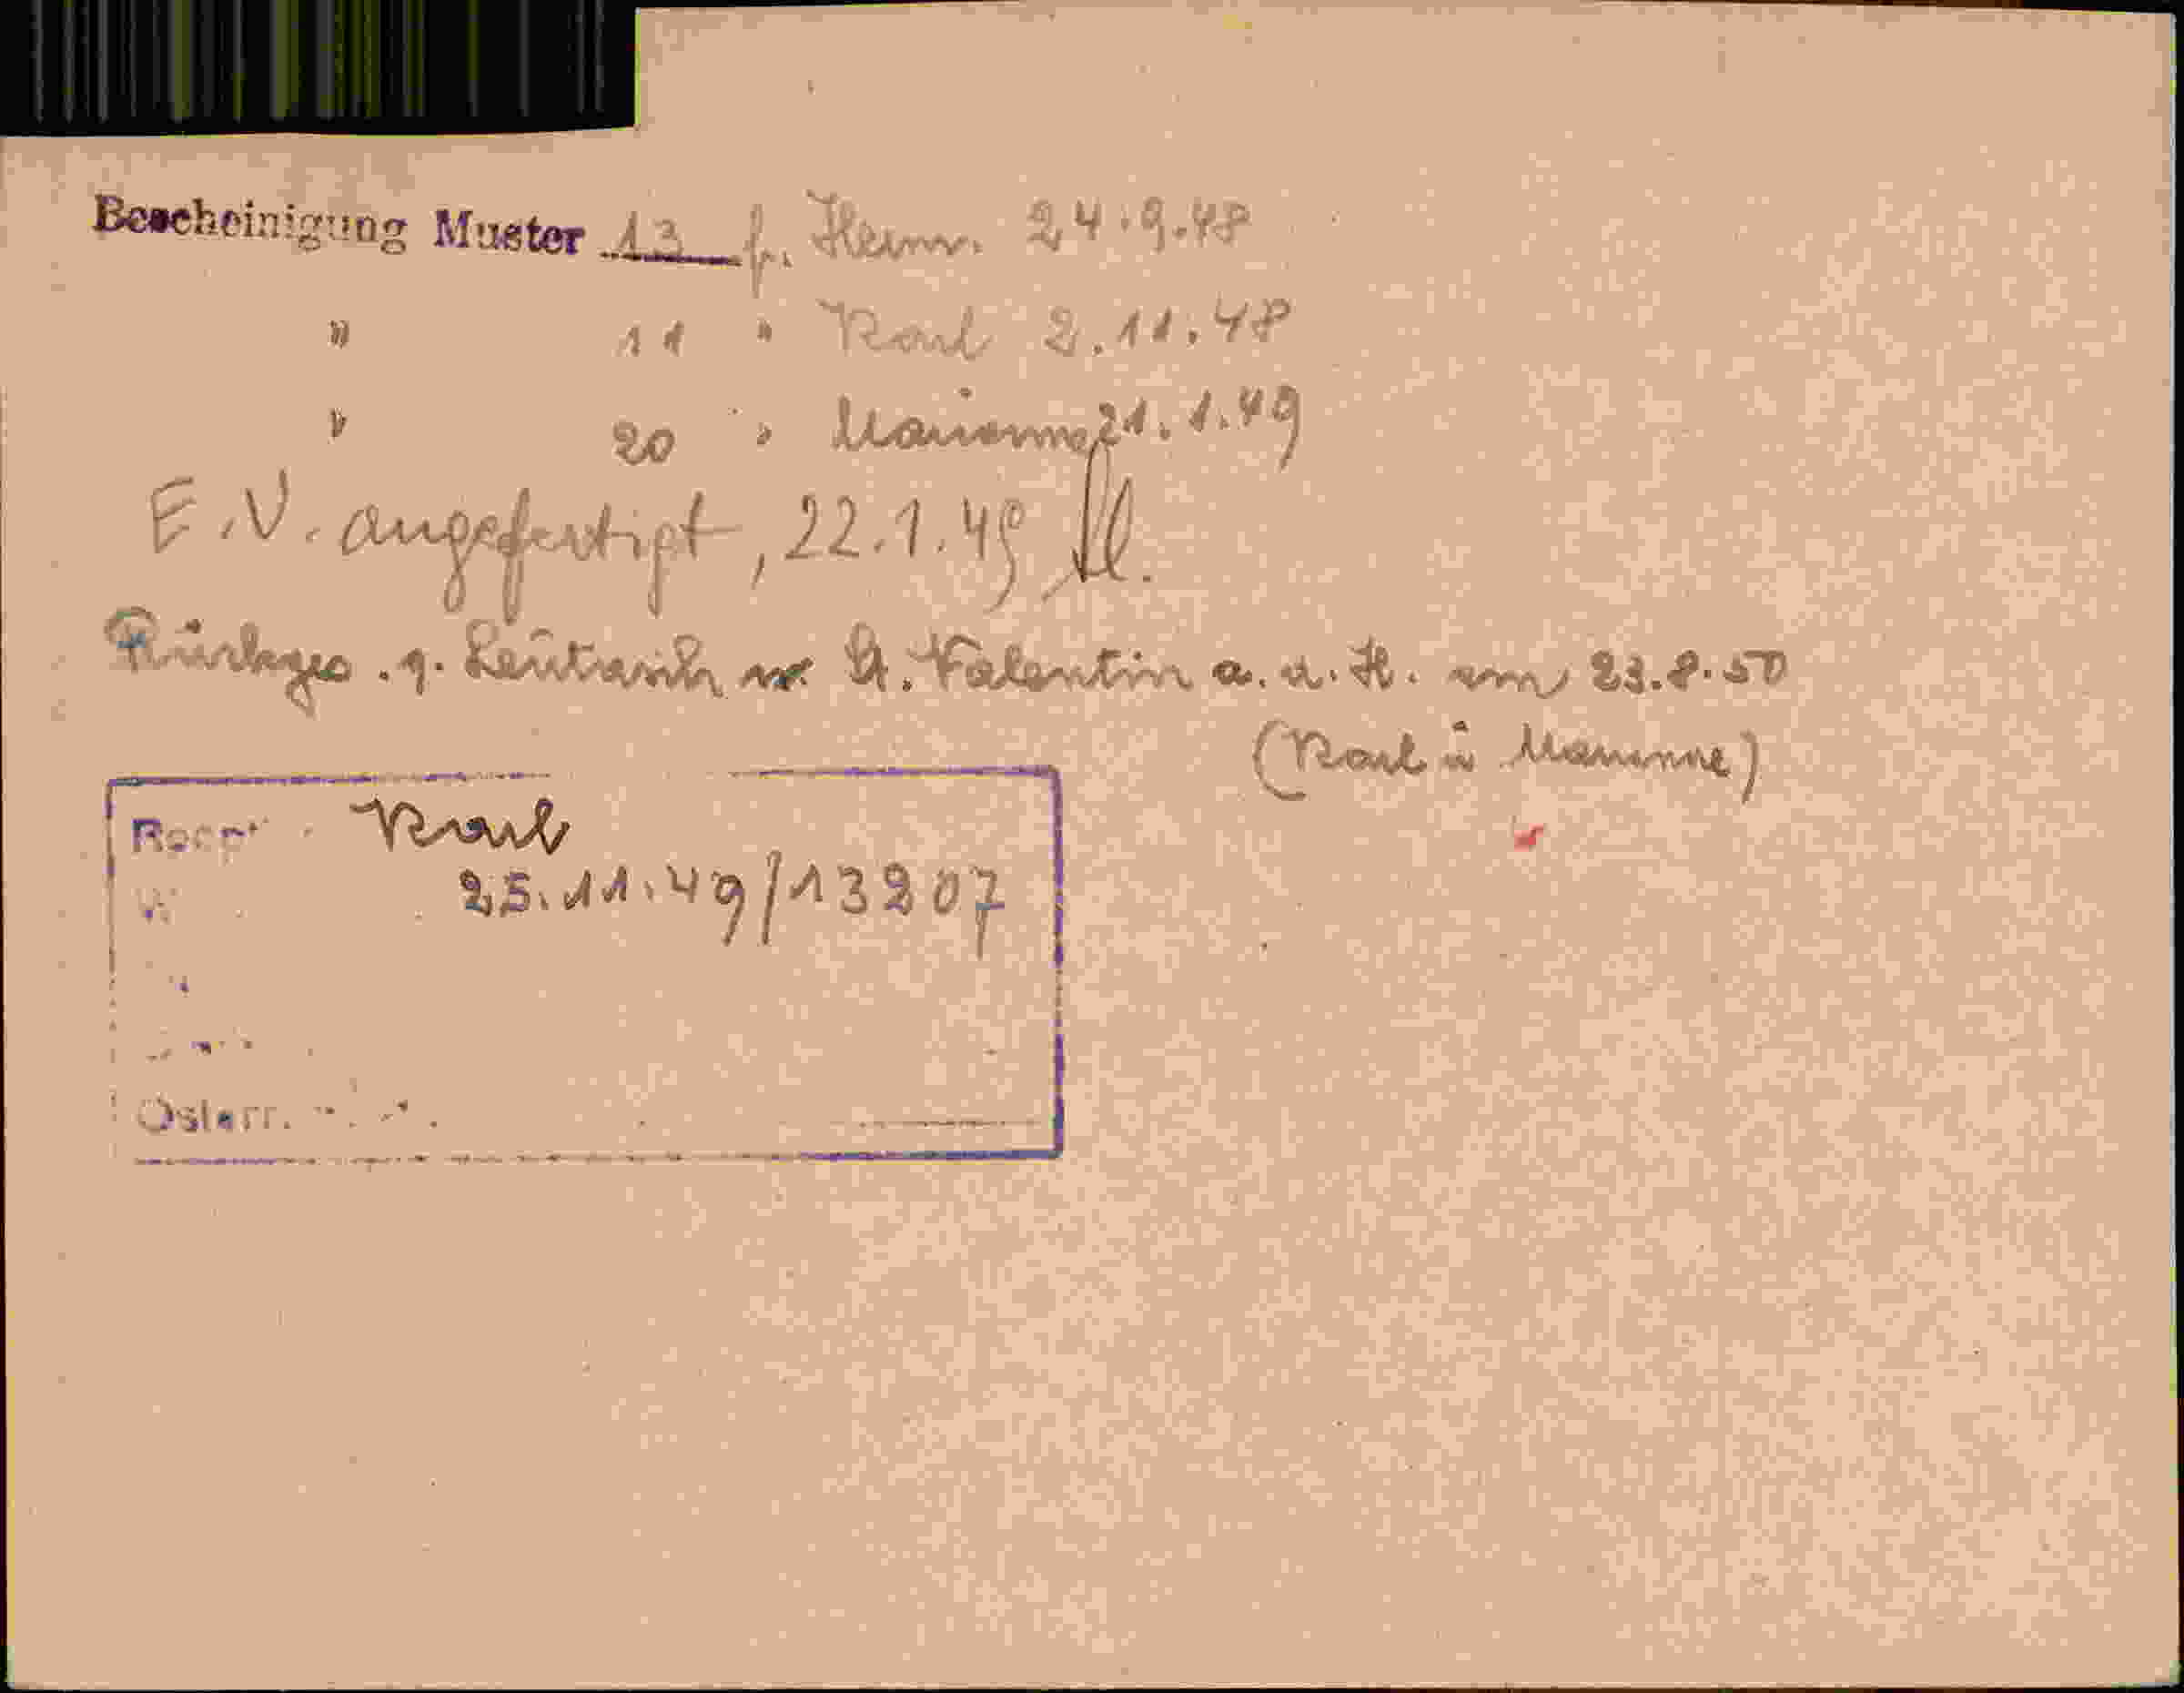 Bescheinigung Muster 13 f. Heinr. 24.9.48
" 11 " Karl 2.11.48
" 20 " Marianne 21.1.49
E.V. angefertigt, 22.1.49
Leutasch St. Valentin a. d. H. am 23.8.50
(Karl u Marianne)
Karl
25.11.49/13207
Österr.